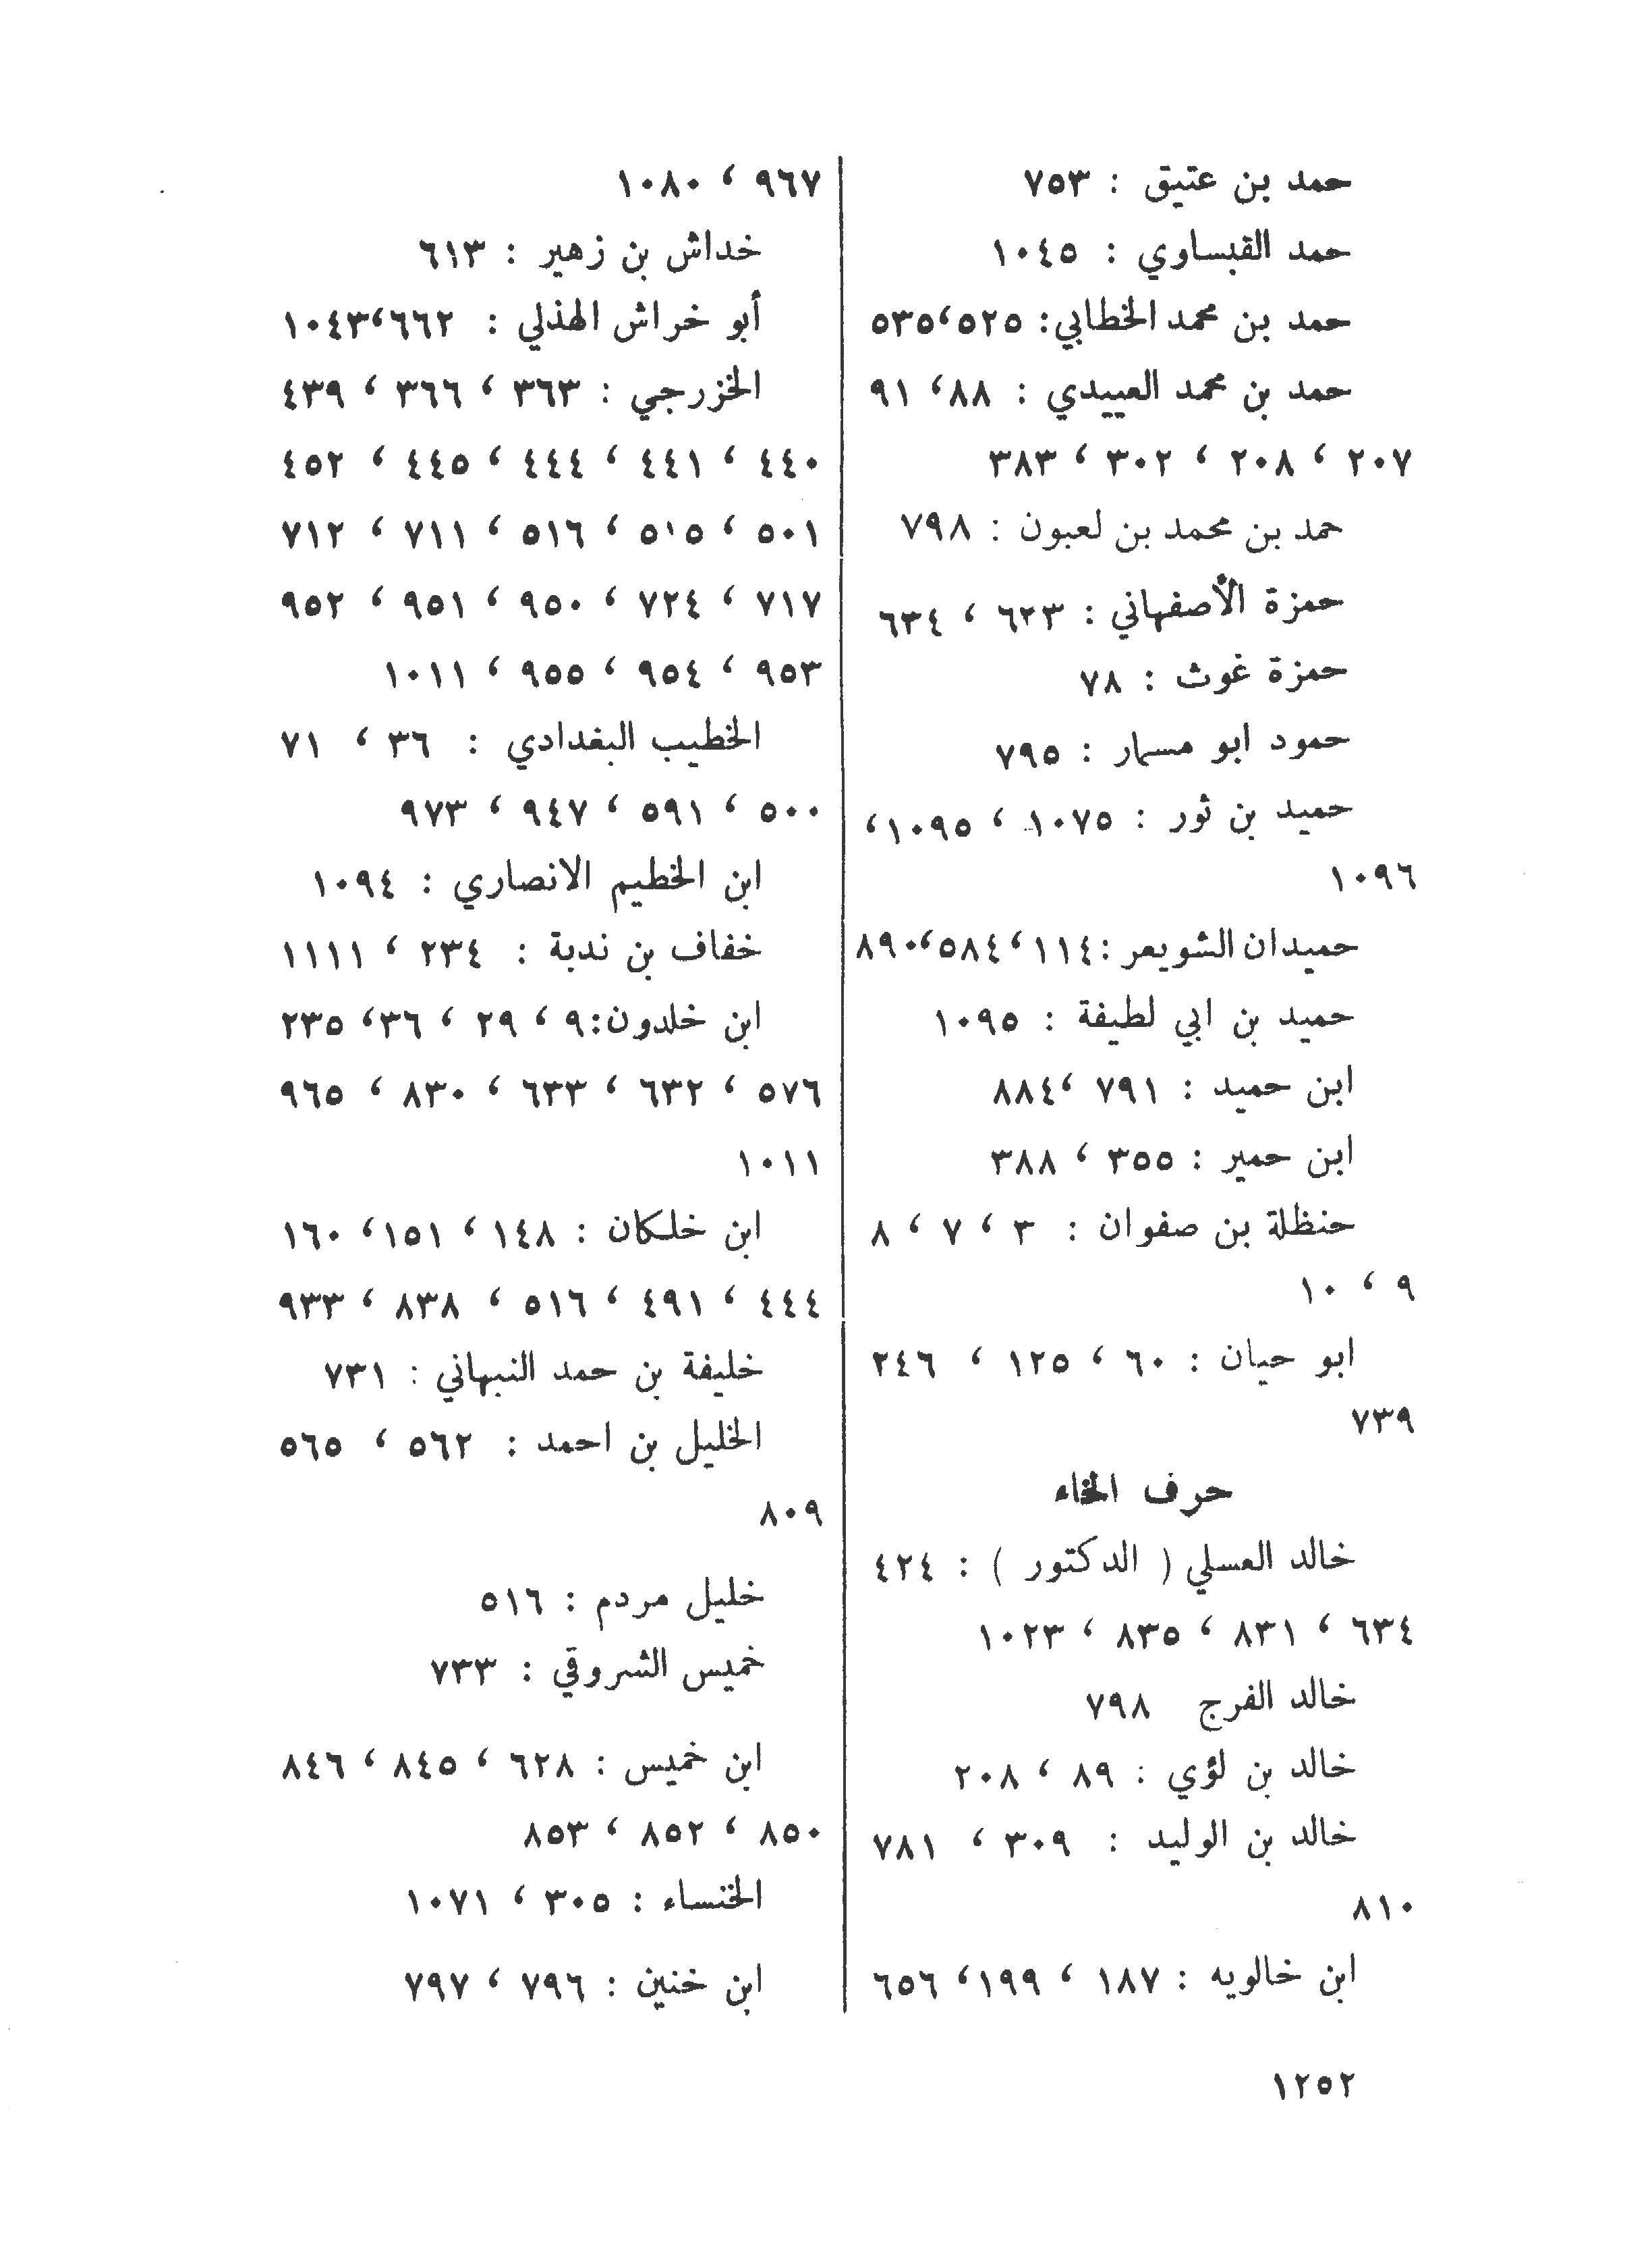 حمد بن عتيق : ٧٥٣
حمد القبساوي : ١٠٤٥
حمد بن محمد الخطابي: ٥٢٥، ٥٣٥
حمد بن محمد العبيدي : ٨٨، ٩١
٢٠٧ ، ٢٠٨ ، ٣٠٢ ، ٣٨٣
حمد بن محمد بن لعبون : ٧٩٨
حمزة الأصفهاني : ٦٢٣ ، ٦٣٤
حمزة غوث : ٧٨
حمود ابو مسمار : ٧٩٥
حميد بن ثور : ١٠٧٥ ، ١٠٩٥،
١٠٩٦
حميدان الشويعر :١١٤،٥٨٤،٨٩٠
حميد بن ابي لطيفة : ١٠٩٥
ابن حميد : ٧٩١ ،٨٨٤
ابن حمير : ٣٥٥ ، ٣٨٨
حنظلة بن صفوان : ٣ ، ٧ ، ٨
٩ ، ١٠
ابو حيان : ٦٠ ، ١٢٥ ، ٢٤٦
٧٣٩
حرف الخاء
خالد العسلي ( الدكتور ) : ٤٢٤
٦٣٤ ، ٨٣١ ، ٨٣٥ ، ١٠٢٣
خالد الفرج ٧٩٨
خالد بن لؤي : ٨٩ ، ٢٠٨
خالد بن الوليد : ٣٠٩ ، ٧٨١
٨١٠
ابن خالويه : ١٨٧ ، ١٩٩، ٦٥٦
٩٦٧ ، ١٠٨٠
خداش بن زهير : ٦١٣
أبو خراش الهذلي : ٦٦٢،١٠٤٣
الخزرجي : ٣٦٣ ، ٣٦٦ ، ٤٣٩
٤٤٠ ، ٤٤١ ، ٤٤٤ ، ٤٤٥ ، ٤٥٢
٥٠١ ، ٥١٥ ، ٥١٦ ، ٧١١ ، ٧١٢
٧١٧ ، ٧٢٤ ، ٩٥٠ ، ٩٥١ ، ٩٥٢
٩٥٣ ، ٩٥٤ ، ٩٥٥ ، ١٠١١
الخطيب البغدادي : ٣٦ ، ٧١
٥٠٠ ، ٥٩١ ، ٩٤٧ ، ٩٧٣
ابن الخطيم الانصاري : ١٠٩٤
خفاف بن ندبة : ٢٣٤ ، ١١١١
ابن خلدون:٩ ، ٢٩ ، ٣٦، ٢٣٥
٥٧٦ ، ٦٣٢ ، ٦٣٣ ، ٨٣٠ ، ٩٦٥
١٠١١
ابن خلكان : ١٤٨ ، ١٥١، ١٦٠
٤٤٤ ، ٤٩١ ، ٥١٦ ، ٨٣٨ ، ٩٣٣
خليفة بن حمد النبهاني : ٧٣١
الخليل بن احمد : ٥٦٢ ، ٥٦٥
٨٠٩
خليل مردم : ٥١٦
خميس الشروقي : ٧٣٣
ابن خميس : ٦٢٨ ، ٨٤٥ ، ٨٤٦
٨٥٠ ، ٨٥٢ ، ٨٥٣
الخنساء : ٣٠٥ ، ١٠٧١
ابن خنين : ٧٩٦ ، ٧٩٧
١٢٥٢